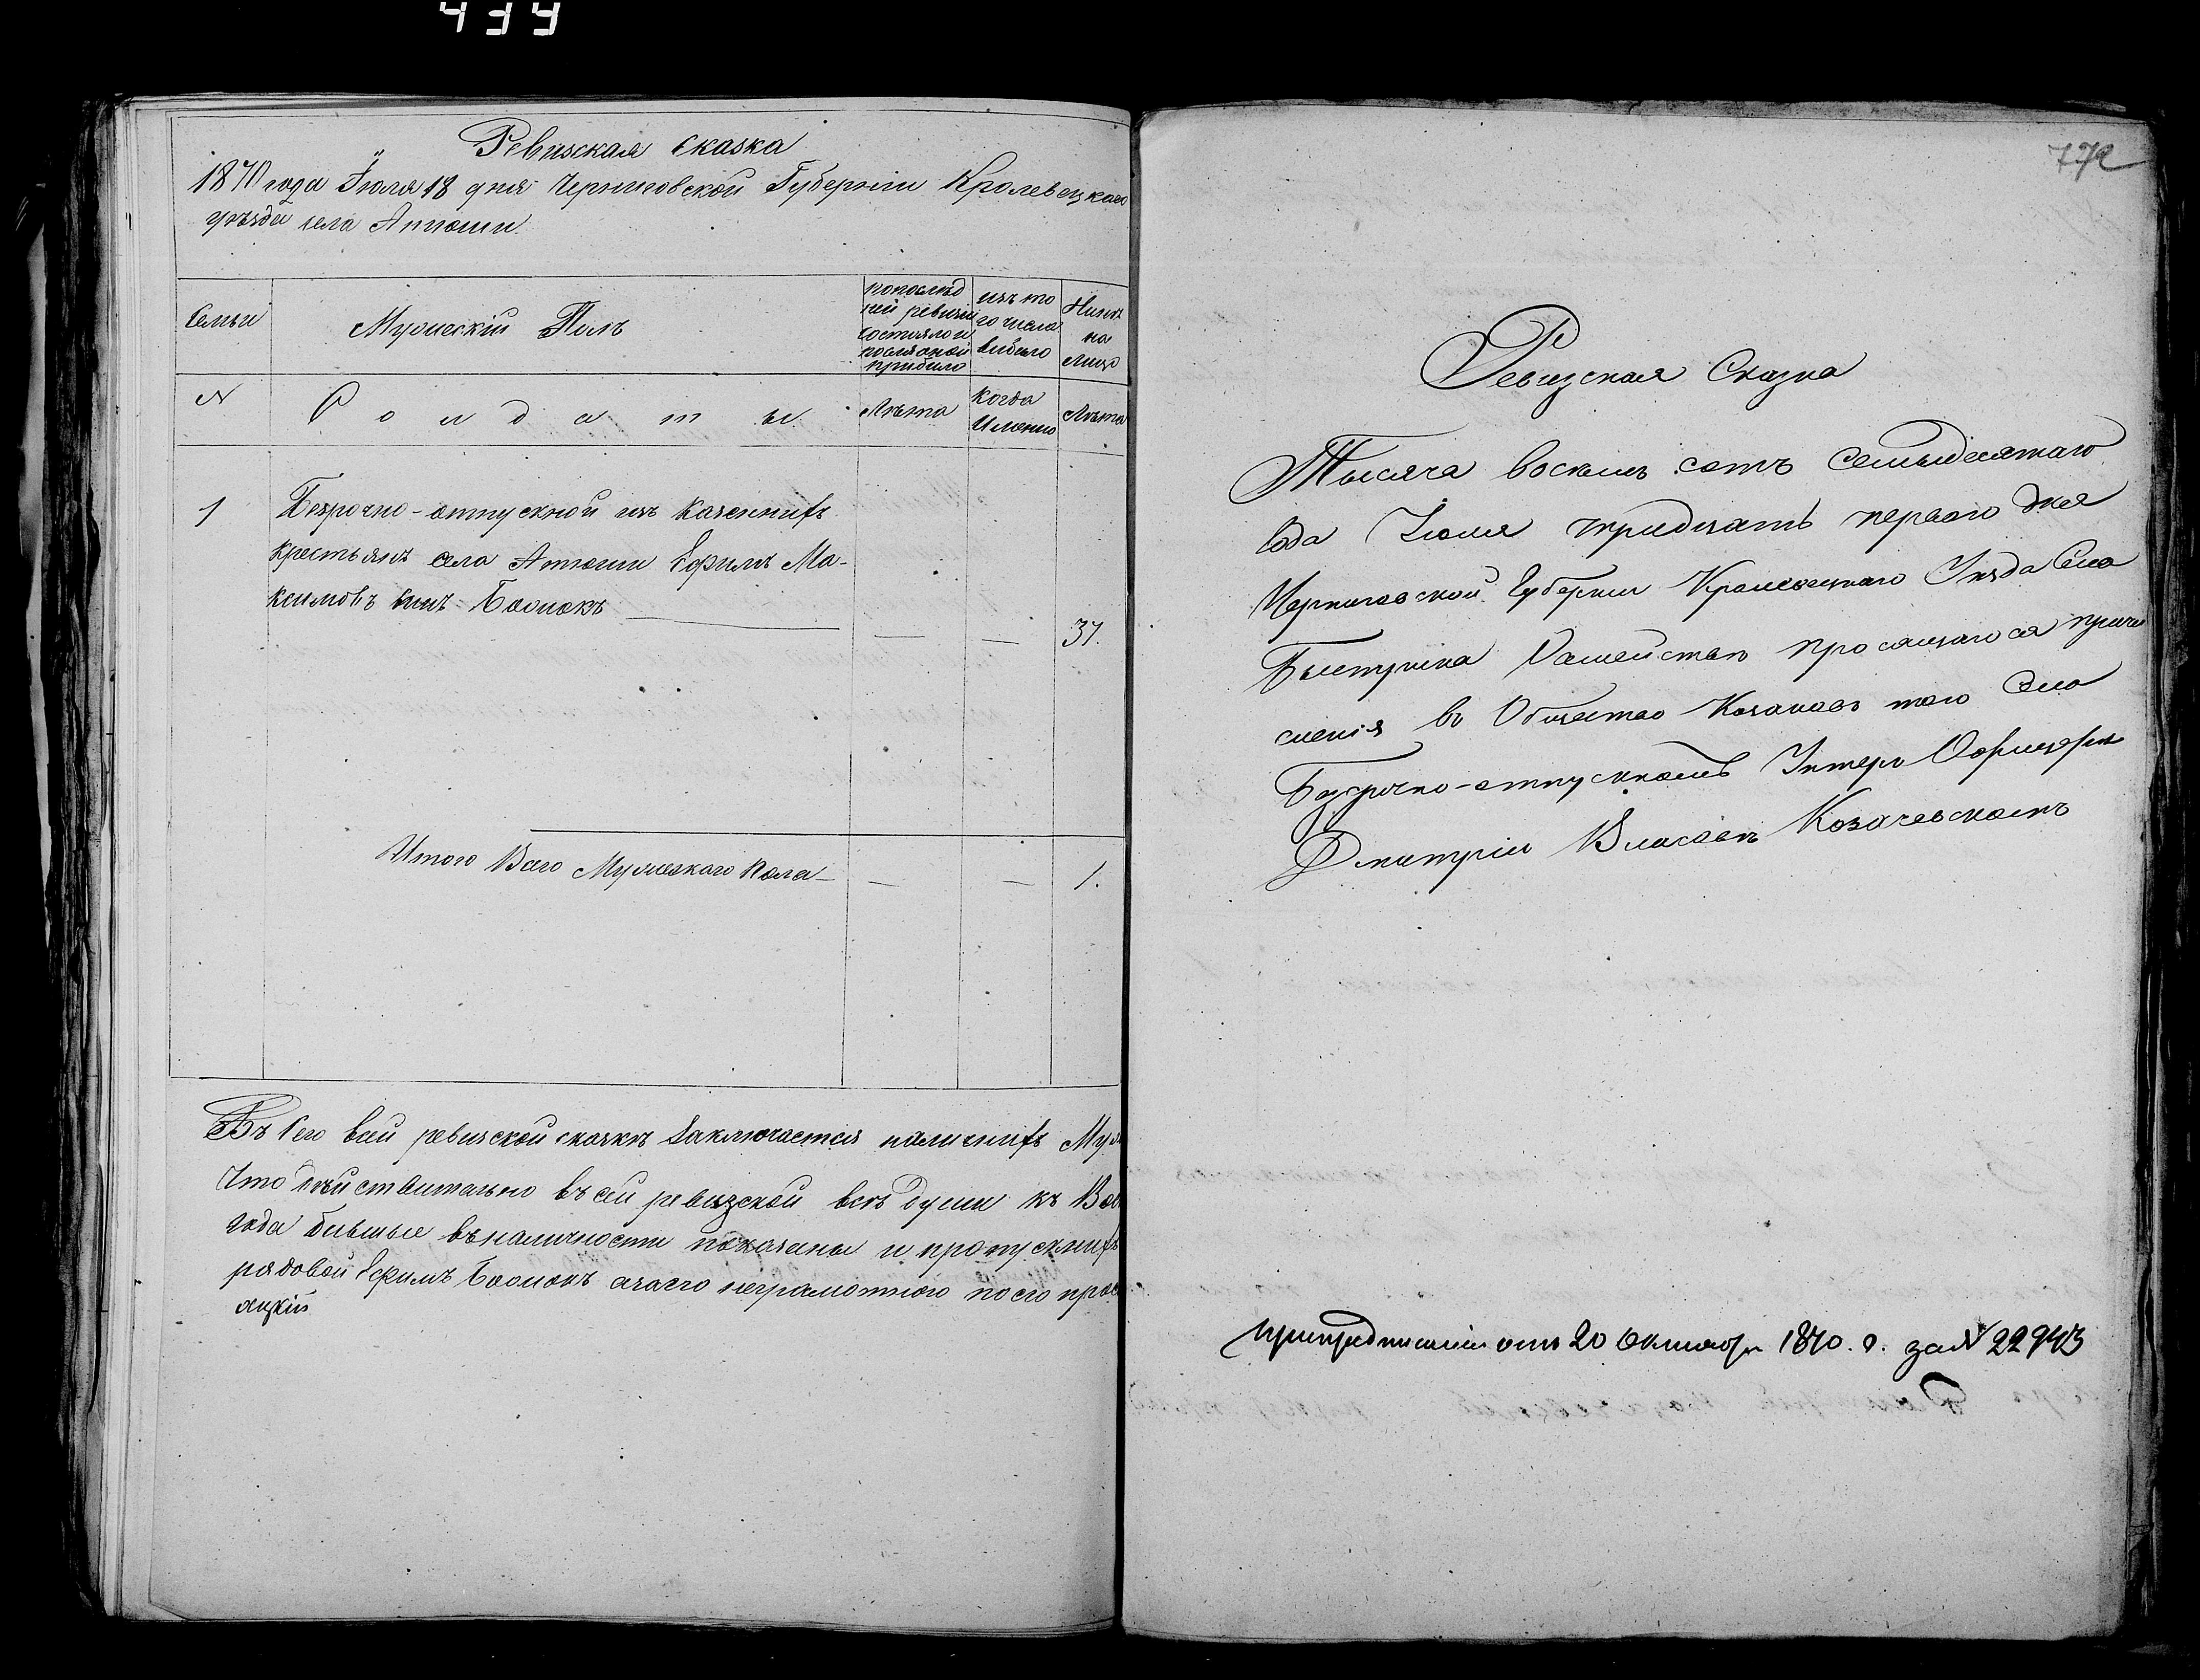 439
Ревизская сказка
1870 года Іюля 18 дня Черниговской Губерніи Кролевецкаго
уѣзда села Атюши.
Семьи
Мужескій Полъ
попослѣд
ней ревизіи
состояло и
послѣ оной
прибыло
изъ то
го числа
выбыло
Нинѣ
на
лицо
N
Солдаты.
Лѣта
Когда
Именно
Лѣта
1
Безрочно-отпускной изъ казеннихъ
крестьянъ села Атюши Ефимъ Ма-
ксимовъ синъ
— — 31.
Итого Всего Мужескаго пола — — — 1.
Въ сего ревизской сказкѣ заключается наличнихъ Муж
Что дѣйствительно въ сей ревизской всѣ души къ
года бившые въ наличности показаны и пропускнихъ
рядовой Ефимъ неграмотного по его
772
Ревизская Сказка
Тысяча восемь сотъ семьдесятаго
Года Іюля тридцать перваго дня
Черниговской Губерніи Кролевецкаго Уѣзда Села
Быстрика просящагося причи
сленія въ Общество Козаковъ того Села
Безсрочно-отпускномъ Унтеръ Офицерѣ
Дмитріи Власовѣ Козачевскомъ
При предписаніи отъ 20 Октября 1870. г. за N 22943